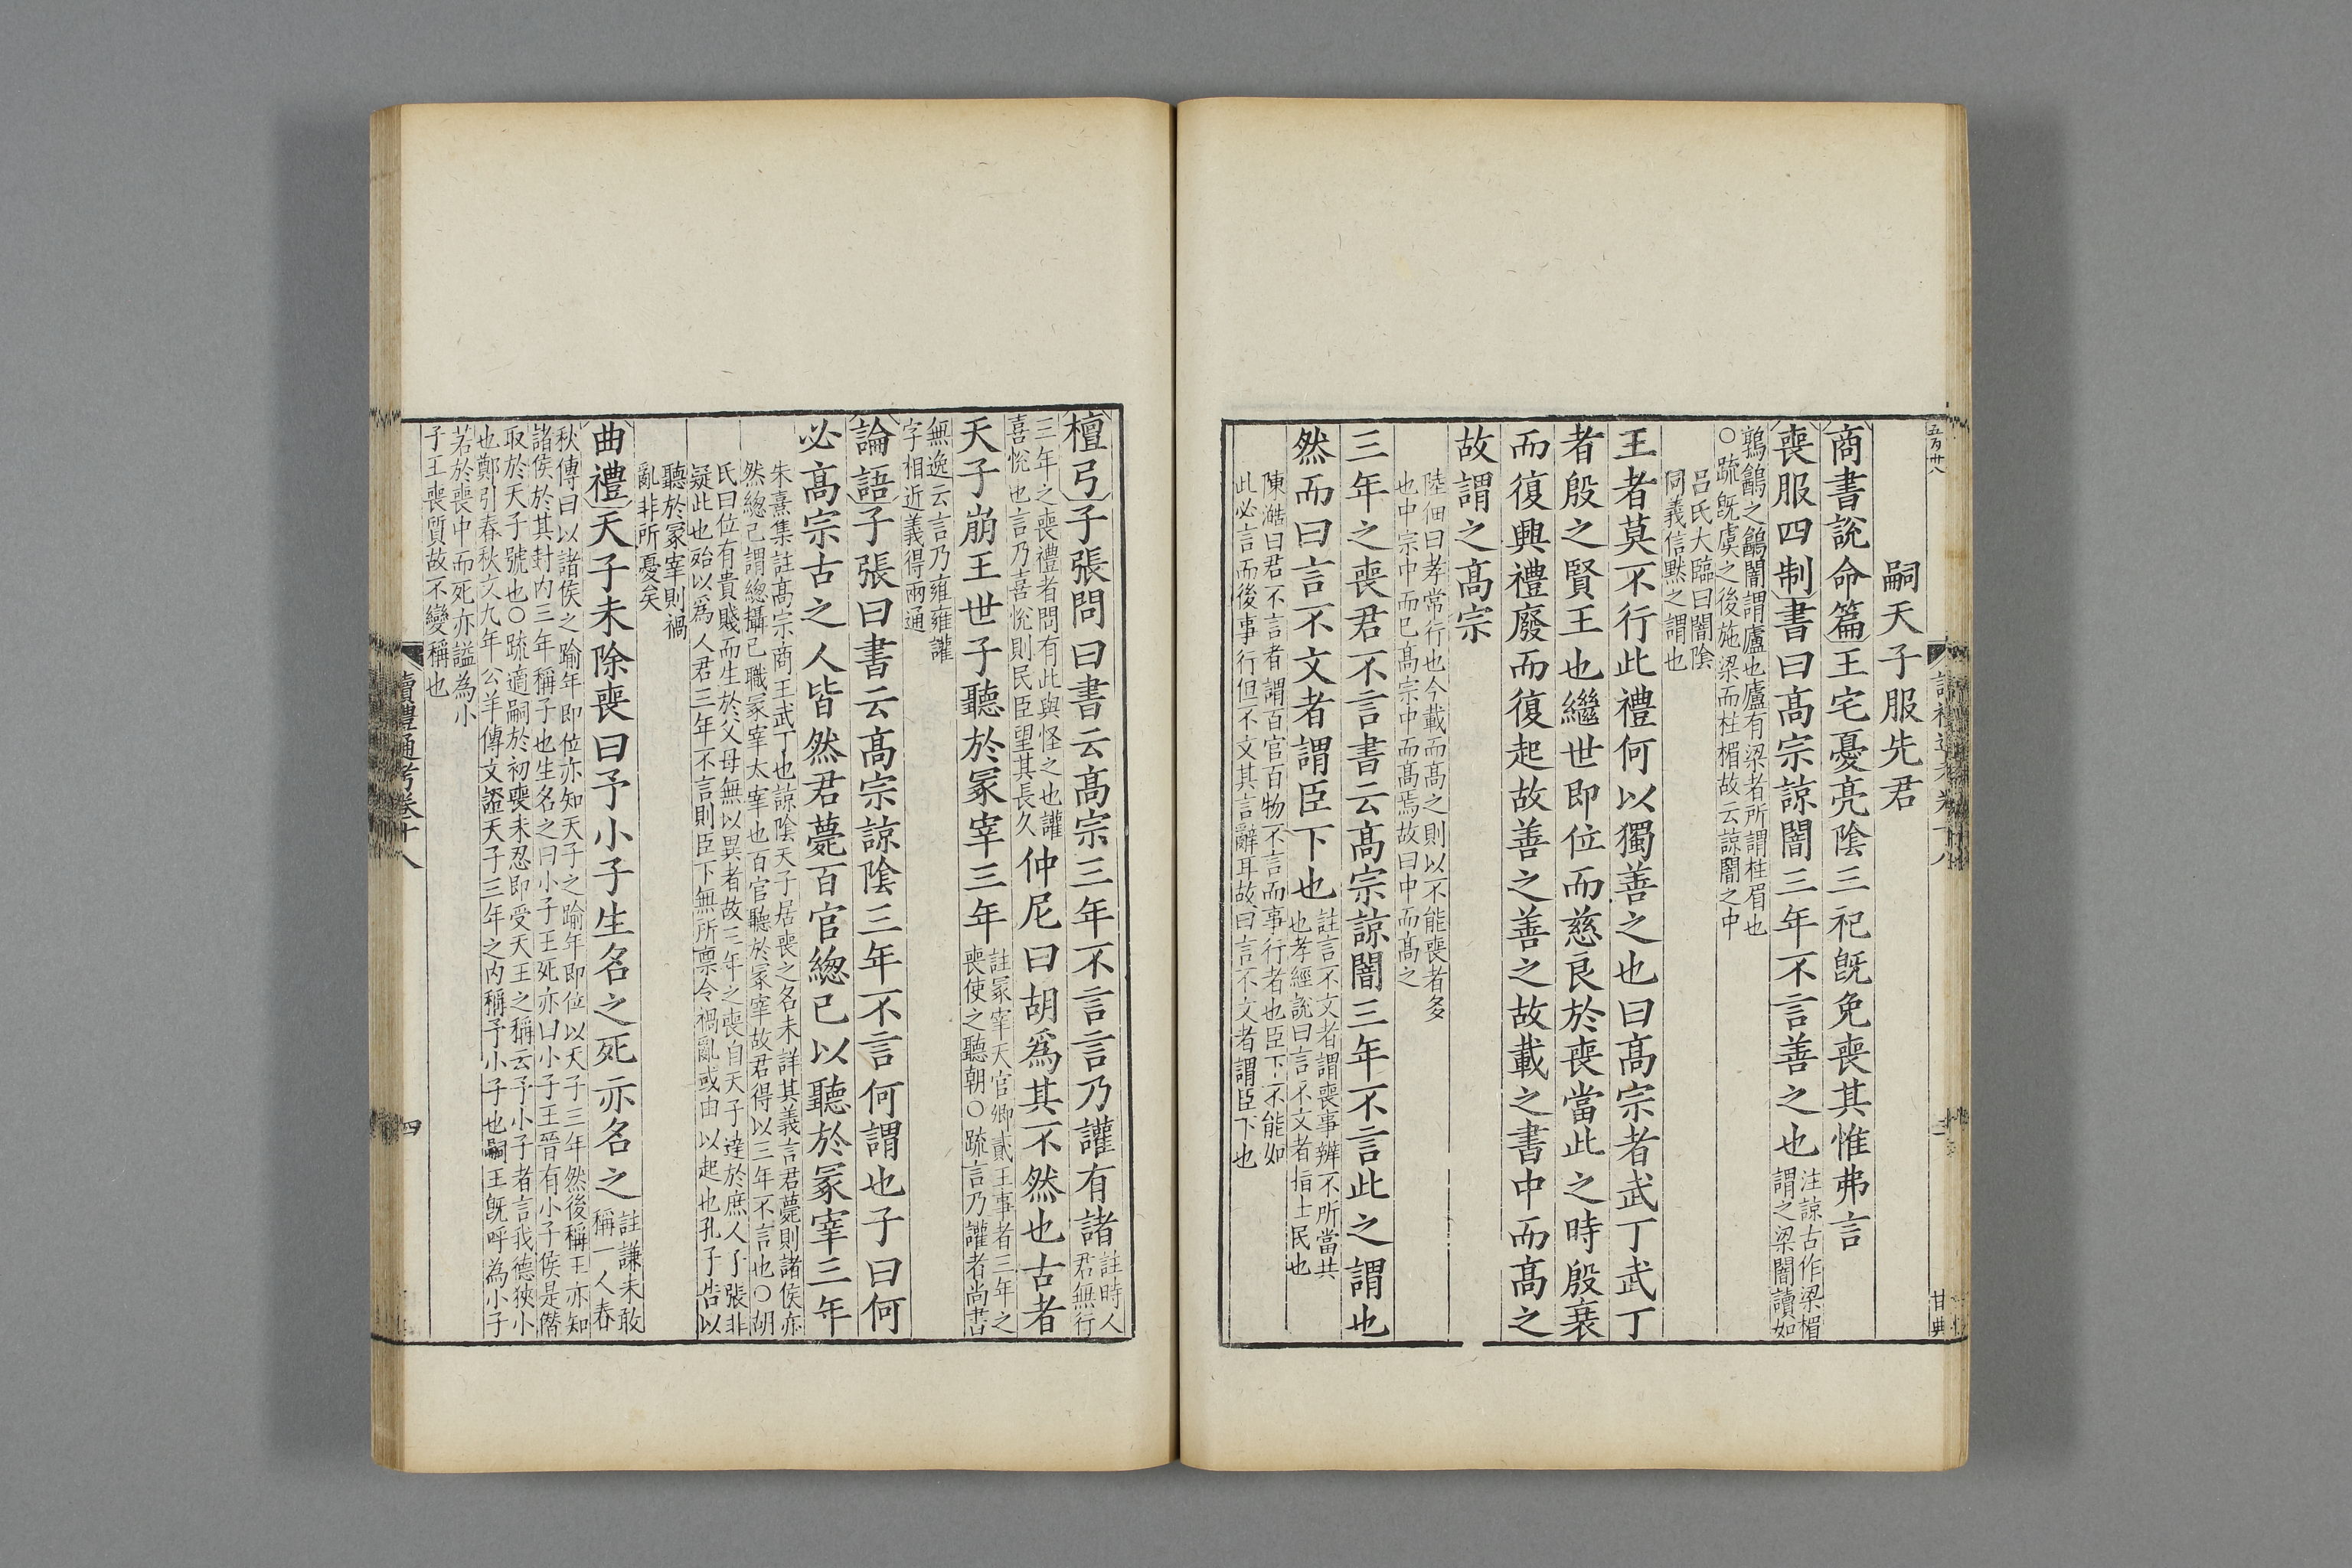 五百卅八
嗣天子服先君
商書説命篇王宅憂亮陰三祀旣免喪其惟弗言
喪服四制書曰高宗諒闇三年不言善之也
注諒古作梁楣
謂之梁闇讀如
鶉鷂之鷂闇謂廬也廬有梁者所謂柱眉也
○疏旣虞之後施梁而柱楣故云諒闇之中
呂氏大臨曰闇陰
同義信默之謂也
王者莫不行此禮何以獨善之也曰高宗者武丁武丁
者殷之賢王也繼世即位而慈良於喪當此之時殷衰
而復興禮廢而復起故善之善之故載之書中而高之
故謂之高宗
陸佃曰孝常行也今載而高之則以不能喪者多
也中宗中而已高宗中而高焉故曰中而高之
三年之喪君不言書云高宗諒闇三年不言此之謂也
然而曰言不文者謂臣下也
註言不文者謂喪事辨不所當共
也孝經説曰言不文者指士民也
陳澔曰君不言者謂百官百物不言而事行者也臣下不能如
此必言而後事行但不文其言辭耳故曰言不文者謂臣下也
檀弓子張問曰書云高宗三年不言言乃讙有諸
註時人
君無行
三年之喪禮者問有此與怪之也讙
喜悅也言乃喜悅則民臣望其長久
仲尼曰胡爲其不然也古者
天子崩王世子聽於冢宰三年
註冢宰天官卿貳王事者三年之
喪使之聽朝○疏言乃讙者尚書
無逸云言乃雍雍讙
字相近義得兩通
論語子張曰書云高宗諒陰三年不言何謂也子曰何
必高宗古之人皆然君薨百官緫已以聽於冢宰三年
朱熹集註高宗商王武丁也諒陰天子居喪之名未詳其義言君薨則諸侯亦
然緫已謂緫攝已職冢宰太宰也百官聽於冢宰故君得以三年不言也○胡
氏曰位有貴賤而生於父母無以異者故三年之喪自天子達於庶人子張非
疑此也殆以爲人君三年不言則臣下無所禀令禍亂或由以起也孔子告以
聽於冢宰則禍
亂非所憂矣
曲禮天子未除喪曰予小子生名之死亦名之
註謙未敢
稱一人春
秋傳曰以諸侯之踰年即位亦知天子之踰年即位以天子三年然後稱王亦知
諸侯於其封内三年稱子也生名之曰小子王死亦曰小子王晉有小子侯是僭
取於天子號也○疏適嗣於初喪未忍即受天王之稱云予小子者言我德狹小
也鄭引春秋文九年公羊傳文證天子三年之内稱予小子也嗣王旣呼為小子
若於喪中而死亦謚為小
子王喪質故不變稱也
讀禮通考卷十八
四